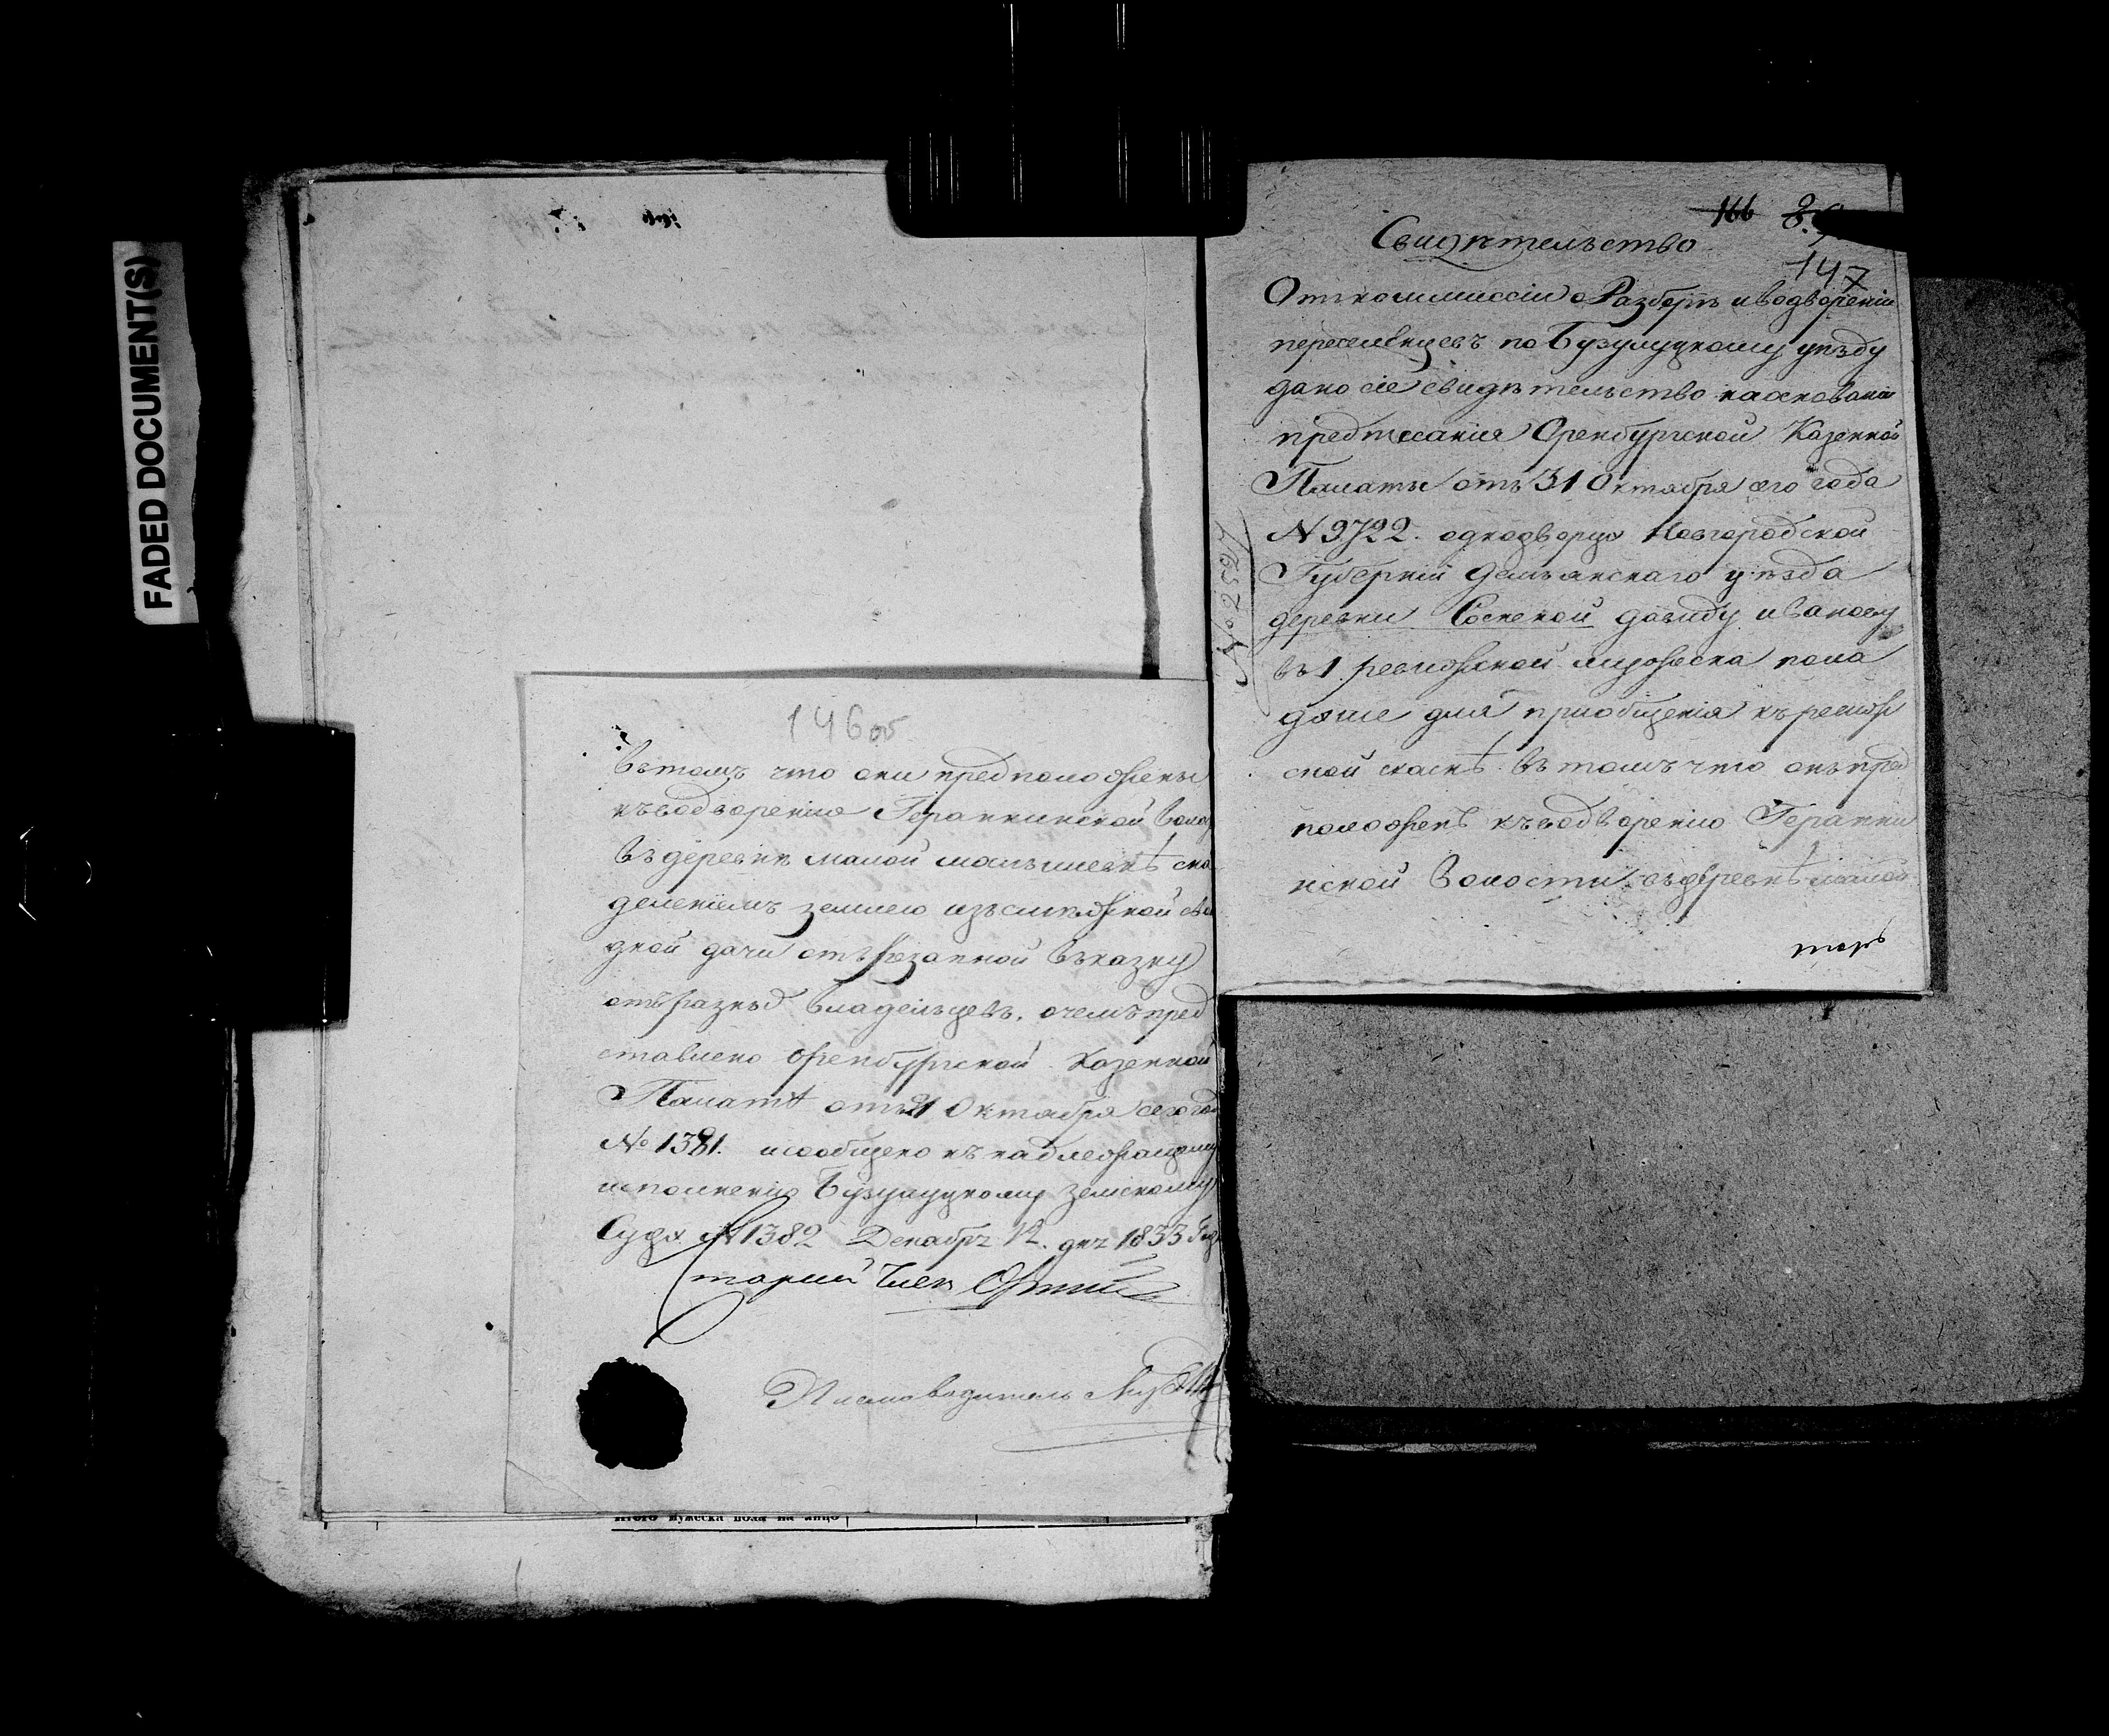 FADED DOCUMENT(S)
146об
въ томъ что они предположены
къ водворению Геранкинской воло
въ деревнѣ малой малышевкѣ сна
делениемъ землею изъ
дной дачи отрѣзанной въ казну
отъ разныхъ владельцевъ, о чемъ пред
ставлено Оренбургской Казенной
Палатѣ отъ 21 Октября сего год
№ 1381. и сообщено къ надлежащему
исполнению Бузулуцкому Земскому
Суду № 1382 Декабрь 12 днь 1833 Года
старший Член
Писмоводитель
Итого мужеска пола на лицо
166
147
Свидѣтельство
От коммиссіи о Разборѣ и водвореніи
переселенцевъ по Бузулуцкому уѣзду
дано сіе свидѣтельство на основаніи
предписанія Оренбургской Казенной
Палаты отъ 31 Октября сего года
N 9722. однодворцу Новгородской
Губерніи демьянскаго уѣзда
деревни Соснской давиду иванову
въ 1. ревижской мужеска пола
душе для приобщенія къ ревиж
ской скаскѣ въ томъ что онъ пред
положенъ къ водворению Геранки
нской волости въ деревнѣ малой
№ 2527